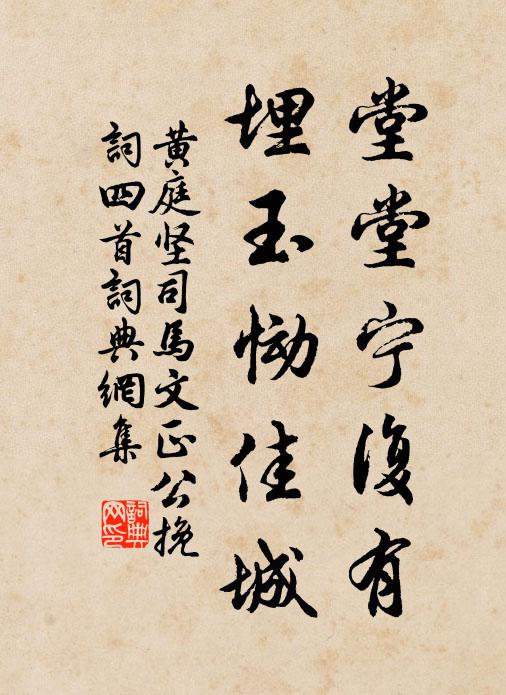 堂堂宁復有
埋玉恸佳城
黄庭坚司馬文正公挽
詞四首詞典網集
詞典
网印